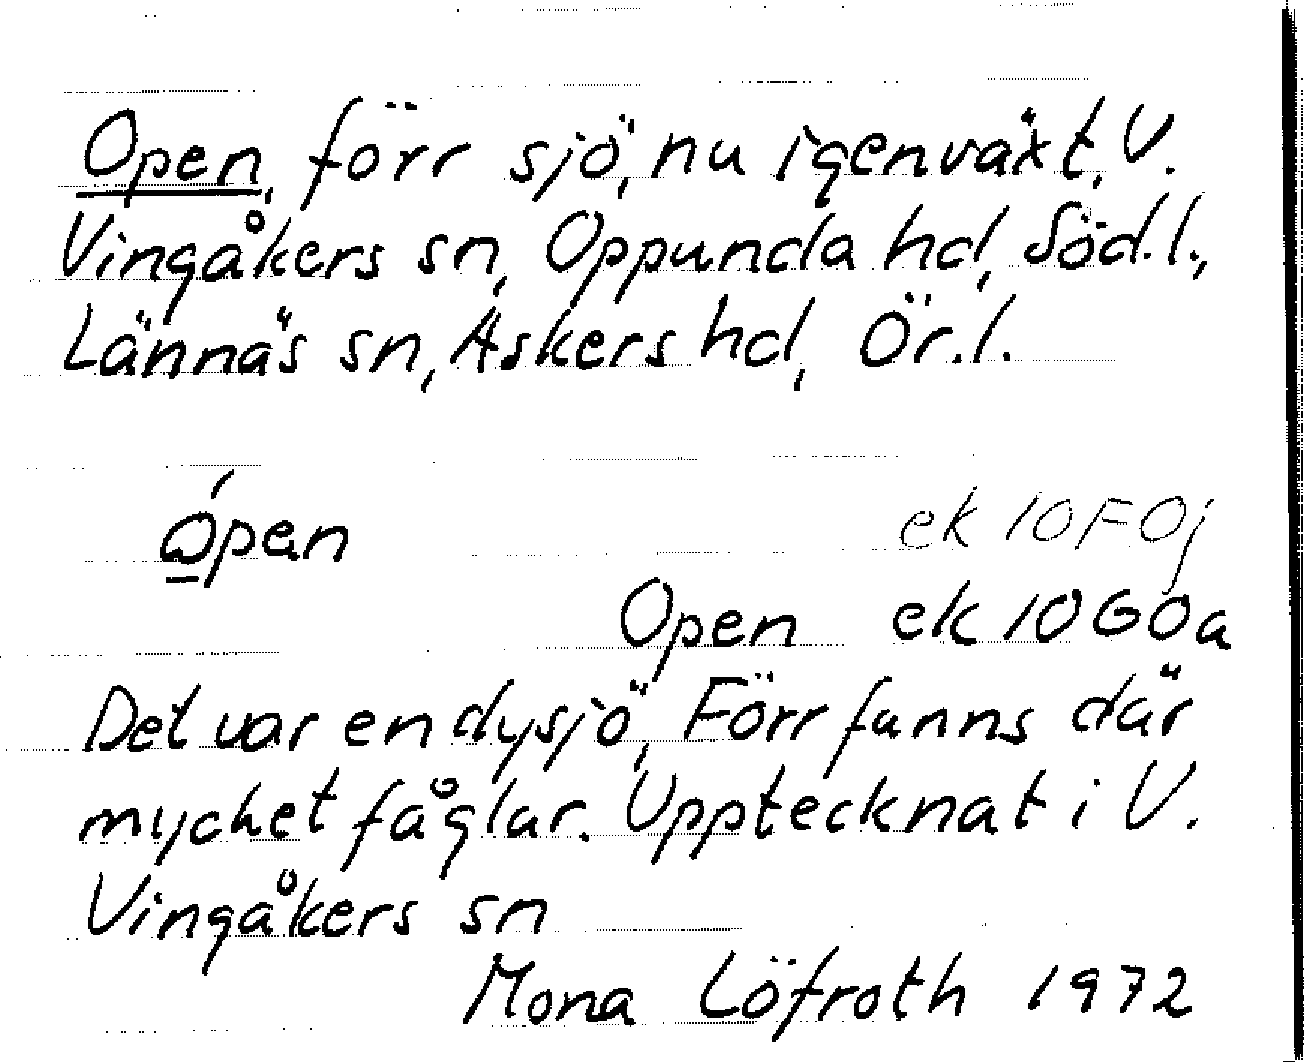 Open, förr sjö, nu igenväxt, V.
Vingåkers sn, Oppunda hd, Söd.l.,
Lännäs sn, Askers hd, Ör.l.
ek 10F0j
Open ek 10G0a
Det var en dysjö, Förr fanns där
mycket fåglar. Upptecknat i V.
Vingåkers sn
Mona Löfroth 1972